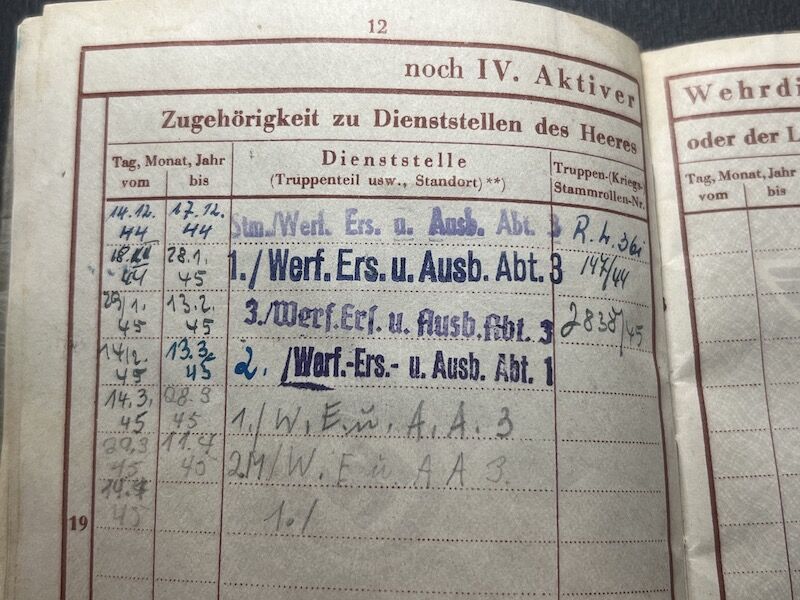 12
noch IV. Aktiver
Wehrdi
Zugehörigkeit zu Dienststellen des Heeres
oder der L
Tag, Monat, Jahr
vom bis
Dienststelle
(Truppenteil usw., Standort)**)
Truppen-(Kriegs-)
Stammrollen-Nr.
Tag, Monat, Jahr
vom bis
14.12. 44 17.12. 44 Stm./Werf. Ers. u. Ausb. Abt. 3
44 28.1. 45 1./Werf. Ers. u. Ausb. Abt. 3 147/44
29/1. 45 13.2. 45 3./Werf. Ers. u. Ausb. Abt. 3 2838/45
14/2. 45 13.3. 45 2. /Werf.-Ers.- u. Ausb. Abt. 1
14.3. 45 28.3 45 1./W. E. u. A. A. 3
29.3 45 11.4 45 2M/W. E u A A 3.
45 1./
19